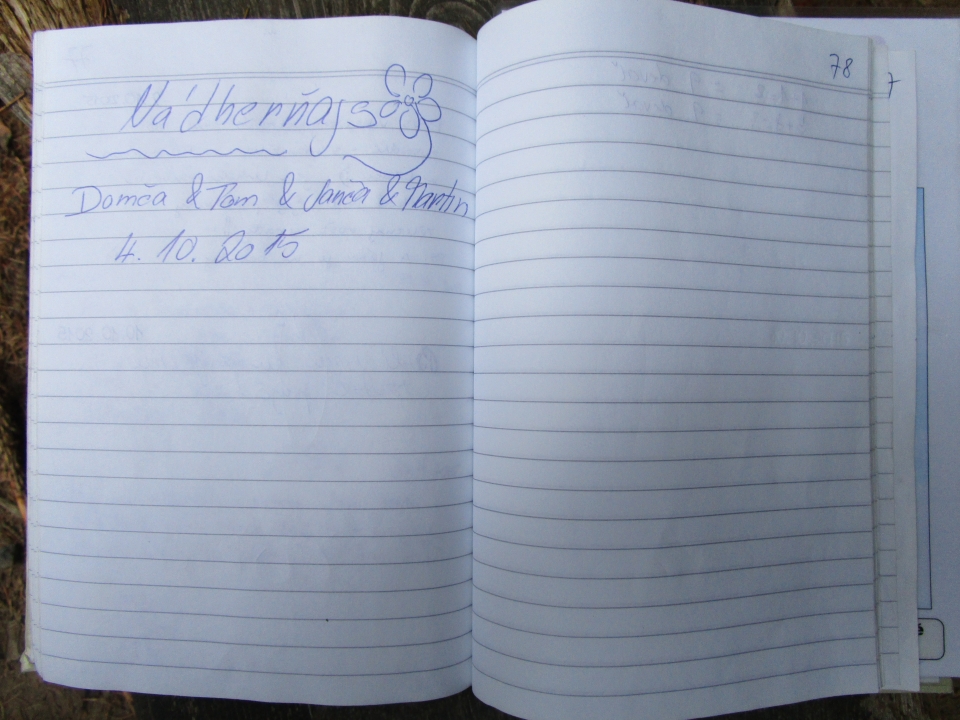 Nádherňajs
Domča & Tom & Janča & Martin
4. 10. 2015
78
7